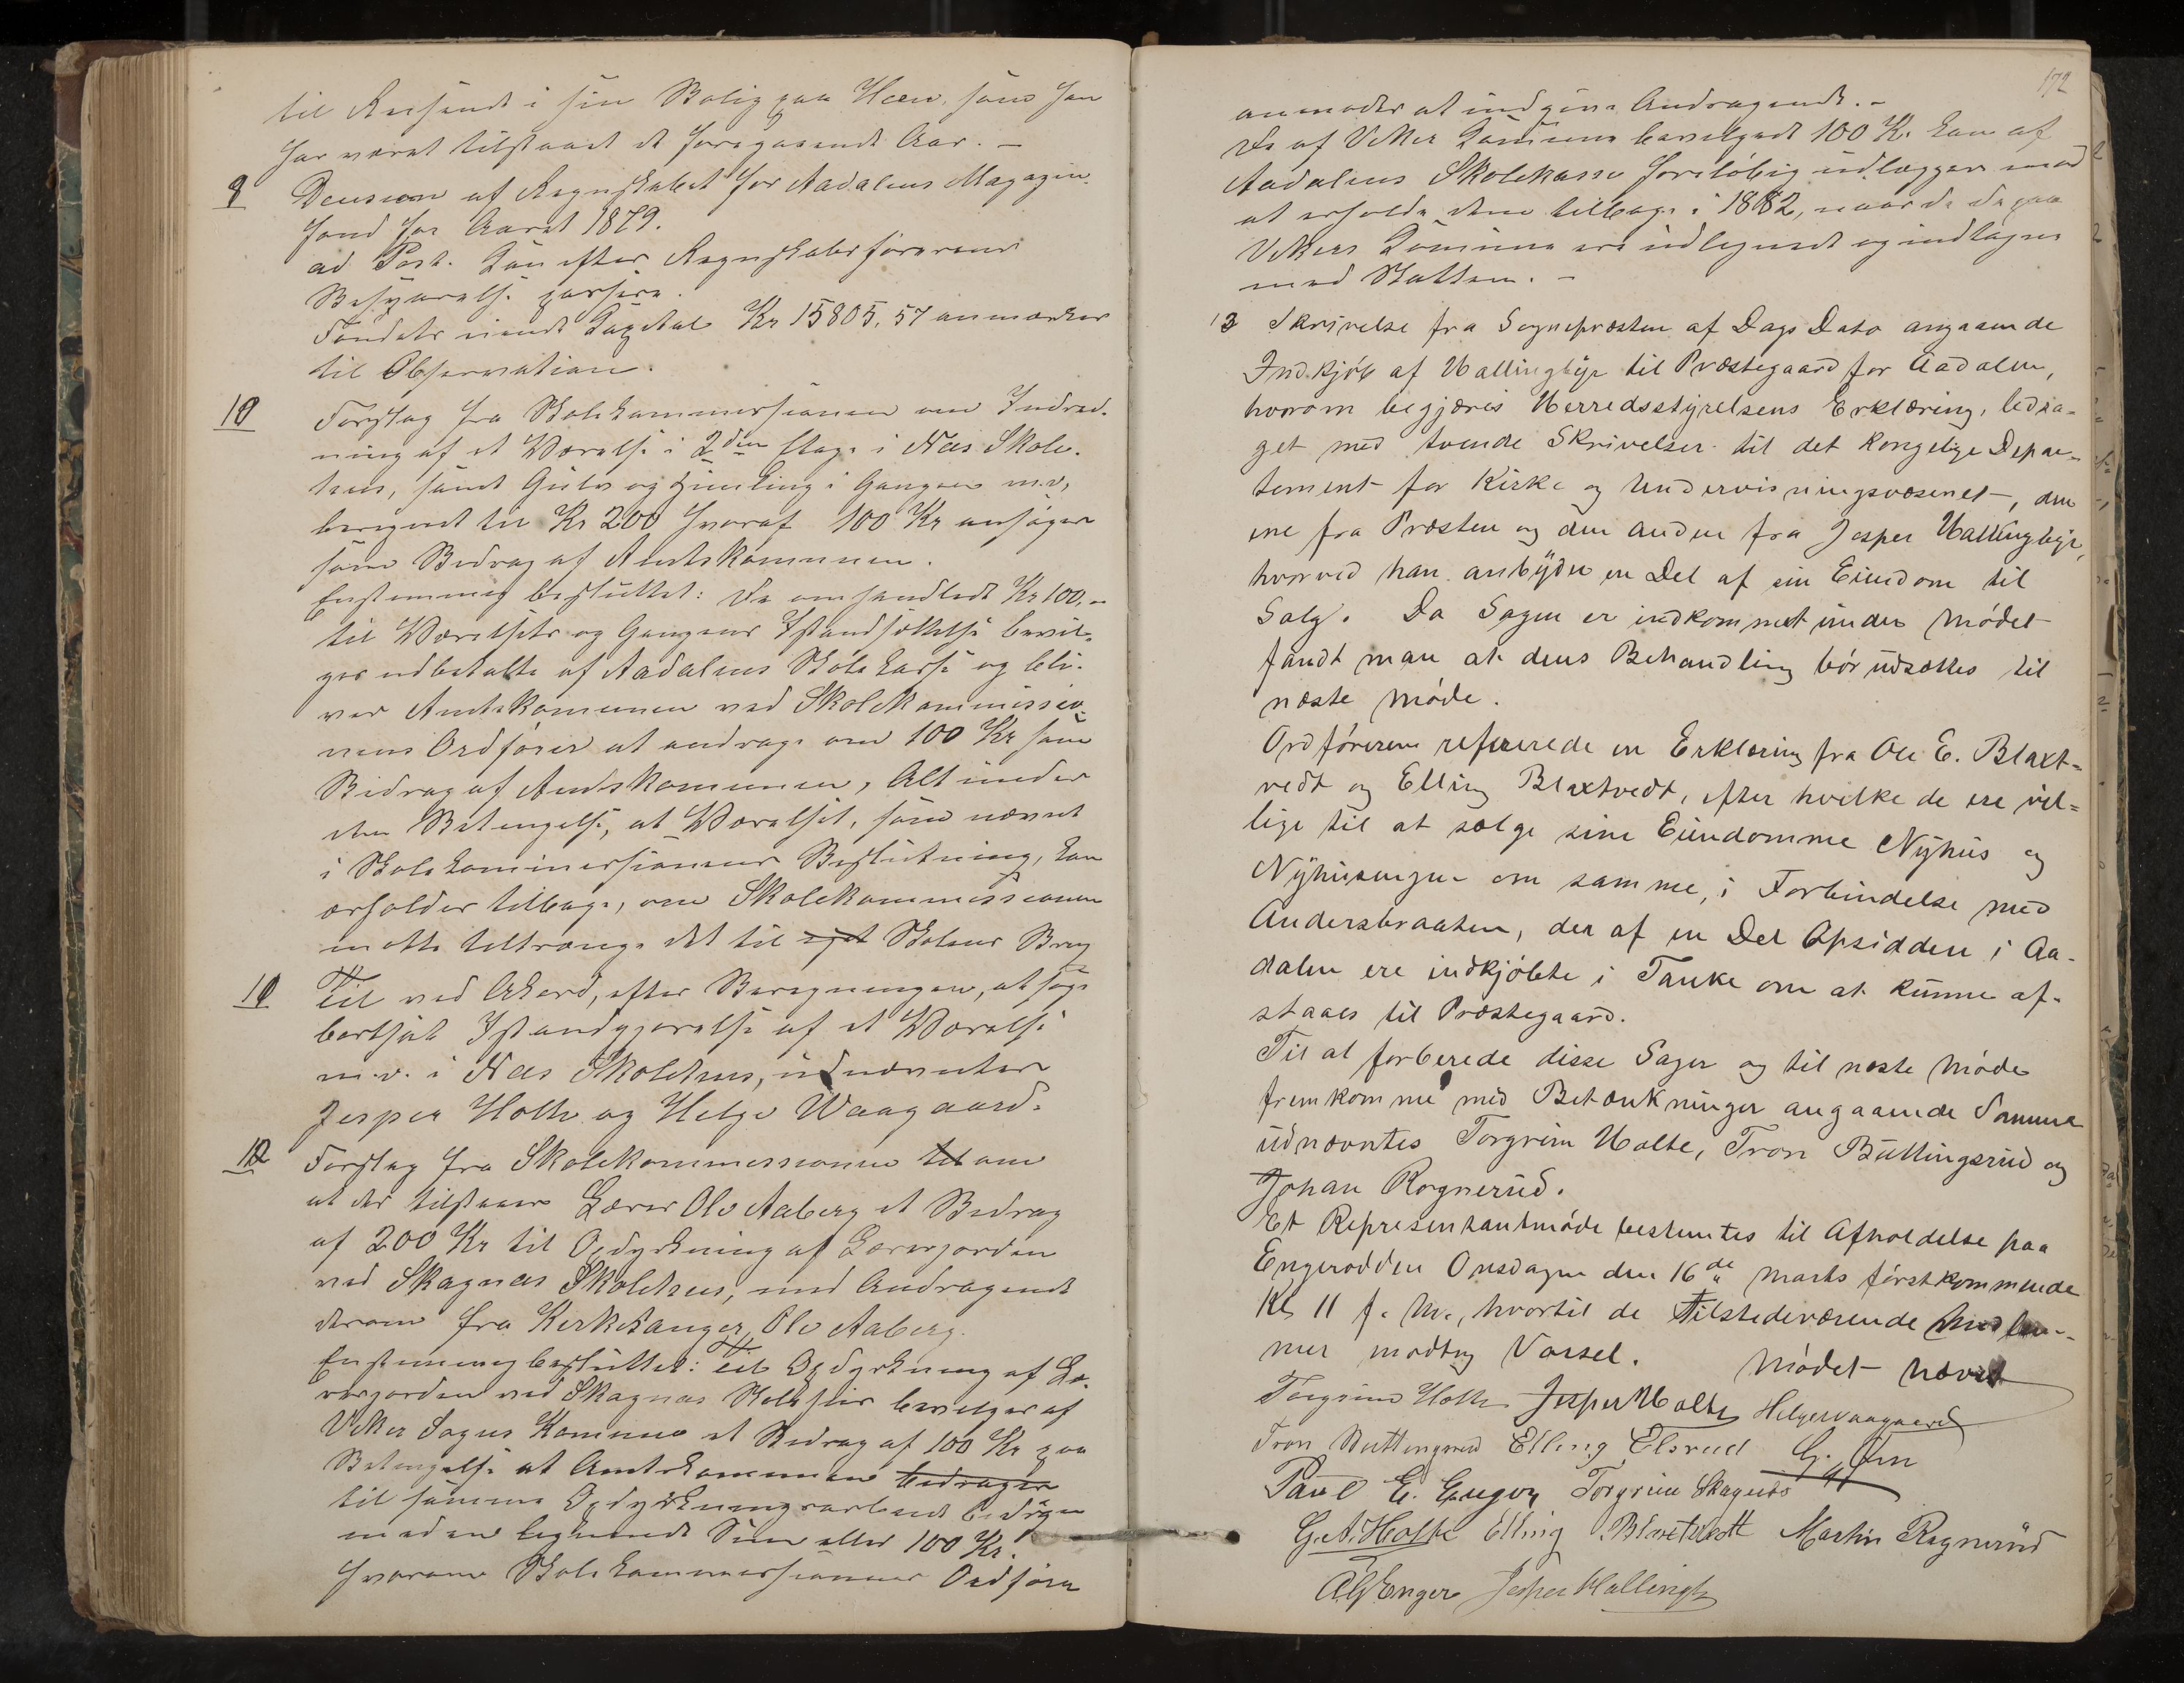 til Reisende i sin Bolig paa Hæn, som han
har været tilstaaet de foregaaende Aar. –
9 Decision af Regnskabet for Aadalens Magazin-
fond for Aaret 1879.
ad Post. Kan efter Regnskabsførerens
Besvarelse passere.
Fondets eiende Kapital Kr 15805,57 anmærkes
til Observation.
10 Forslag fra Skolekommissionen om Indred-
ning af et Værelse i 2den Etage i Næs Skole-
hus, samt Gulv og Himling i Gangen m.v,
beregnet til Kr 200 hvoraf 100 Kr ansøges
som Bidrag af Amtskommunen.
Enstemmig besluttet: De omhandlede Kr 100,-
til Værelsets og Gangens Istandsættelse bevil-
ges udbetalte af Aadalens Skolekasse og bli-
ver Amtskommunen ved Skolekommissio-
nens Ordfører at andrage om 100 Kr som
Bidrag af Amtskommunen, Alt under
den Betingelse, at Værelset, som nævnt
i Skolekommissionens Beslutning, kan
erholdes tilbage, om Skolekommissionen
maatte tiltrænge det til eget Skolens Brug
11 Til ved Akkord, efter Beregningen, at søge
bortsat Istandgjørelse af et Værelse
m.v. i Næs Skolehus, udnævntes
Jesper Holte og Helge Waagaard.
12 Forslag fra Skolekommissionen til om
at der tilstaaes Lærer Ole Aaberg et Bidrag
af 200 Kr til Opdyrkning af Lærerjorden
ved Skagnæs Skolehus, med Andragende
derom fra Kirkesanger Ole Aaberg.
Enstemmig besluttet: Til Opdyrkning af Læ-
rerjorden ved Skagnæs Skolehus bevilges af
Vikers Sogns Kommune et Bidrag af 100 Kr paa
Betingelse at Amtskommunen bidrager
til samme Opdyrkningsarbeide bidrager
med en lignende Sum eller 100 Kr.
hvorom Skolekommissionens Ordfører
172
anmodes at indgive Andragende. –
De af Viker Kommune bevilgede 100 Kr. kan af
Aadalens Skolekasse foreløbig udlægges mod
at erholde dem tilbage i 1882, naar de da paa
Vikers Kommune ere udlignede og indtagne
med Skatten. –
13 Skrivelse fra Sognepræsten af Dags Dato angaaende
Indkjøb af Hallingbye til Præstegaard for Aadalen,
hvorom begjæres Herredsstyrelsens Erklæring, ledsa-
get med tvende Skrivelser til det kongelige Depar-
tement for Kirke og Undervisningsvæsenet, den
ene fra Præsten og den anden fra Jesper Hallingbye,
hvorved han anbyder en Del af sin Eiendom til
Salg. Da Sagen er indkommet under Mødet
fandt man at dens Behandling bør udsættes til
næste Møde.
Ordføreren refererede en Erklæring fra Ole E. Blaxt-
vedt og Elling Blaxtvedt, efter hvilke de ere vil-
lige til at sælge sine Eiendomme Nyhus og
Nyhusengen om samme, i Forbindelse med
Andersbraaten, der af en Del Opsiddere i Aa-
dalen ere indkjøbte i Tanke om at kunne af-
staaes til Præstegaard.
Til at forberede disse Sager og til næste Møde
fremkomme med Betænkninger angaaende Samme
udnævntes Torgrim Holte, Tron Buttingsrud og
Johan Rognerud.
Et Repræsentantmøde bestemtes til Afholdelse paa
Engerodden Onsdagen den 16de Marts førstkommende
Kl 11 f. M., hvortil de Tilstedeværende Medlem-
mer modtog Varsel. Mødet hævet
Torgrim Holte Jesper Holte Helgewaagaard
Tron Buttingsrud Elling Elsrud G.
Paul E. Enger Torgrim Skagnæs
G. A. Holte Elling Blaxtvedt Martin Ragnerud
Enger Jesper Hallingby